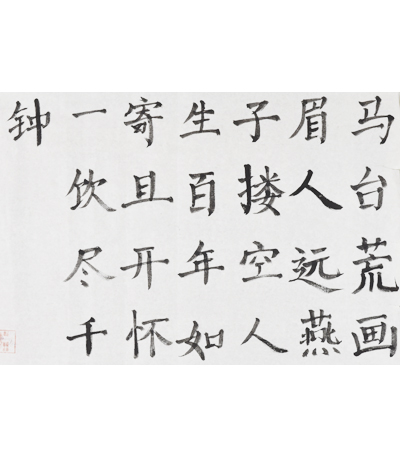 马台荒画
眉人远燕
子搂空人
生百年如
寄且开怀
一饮尽千
钟